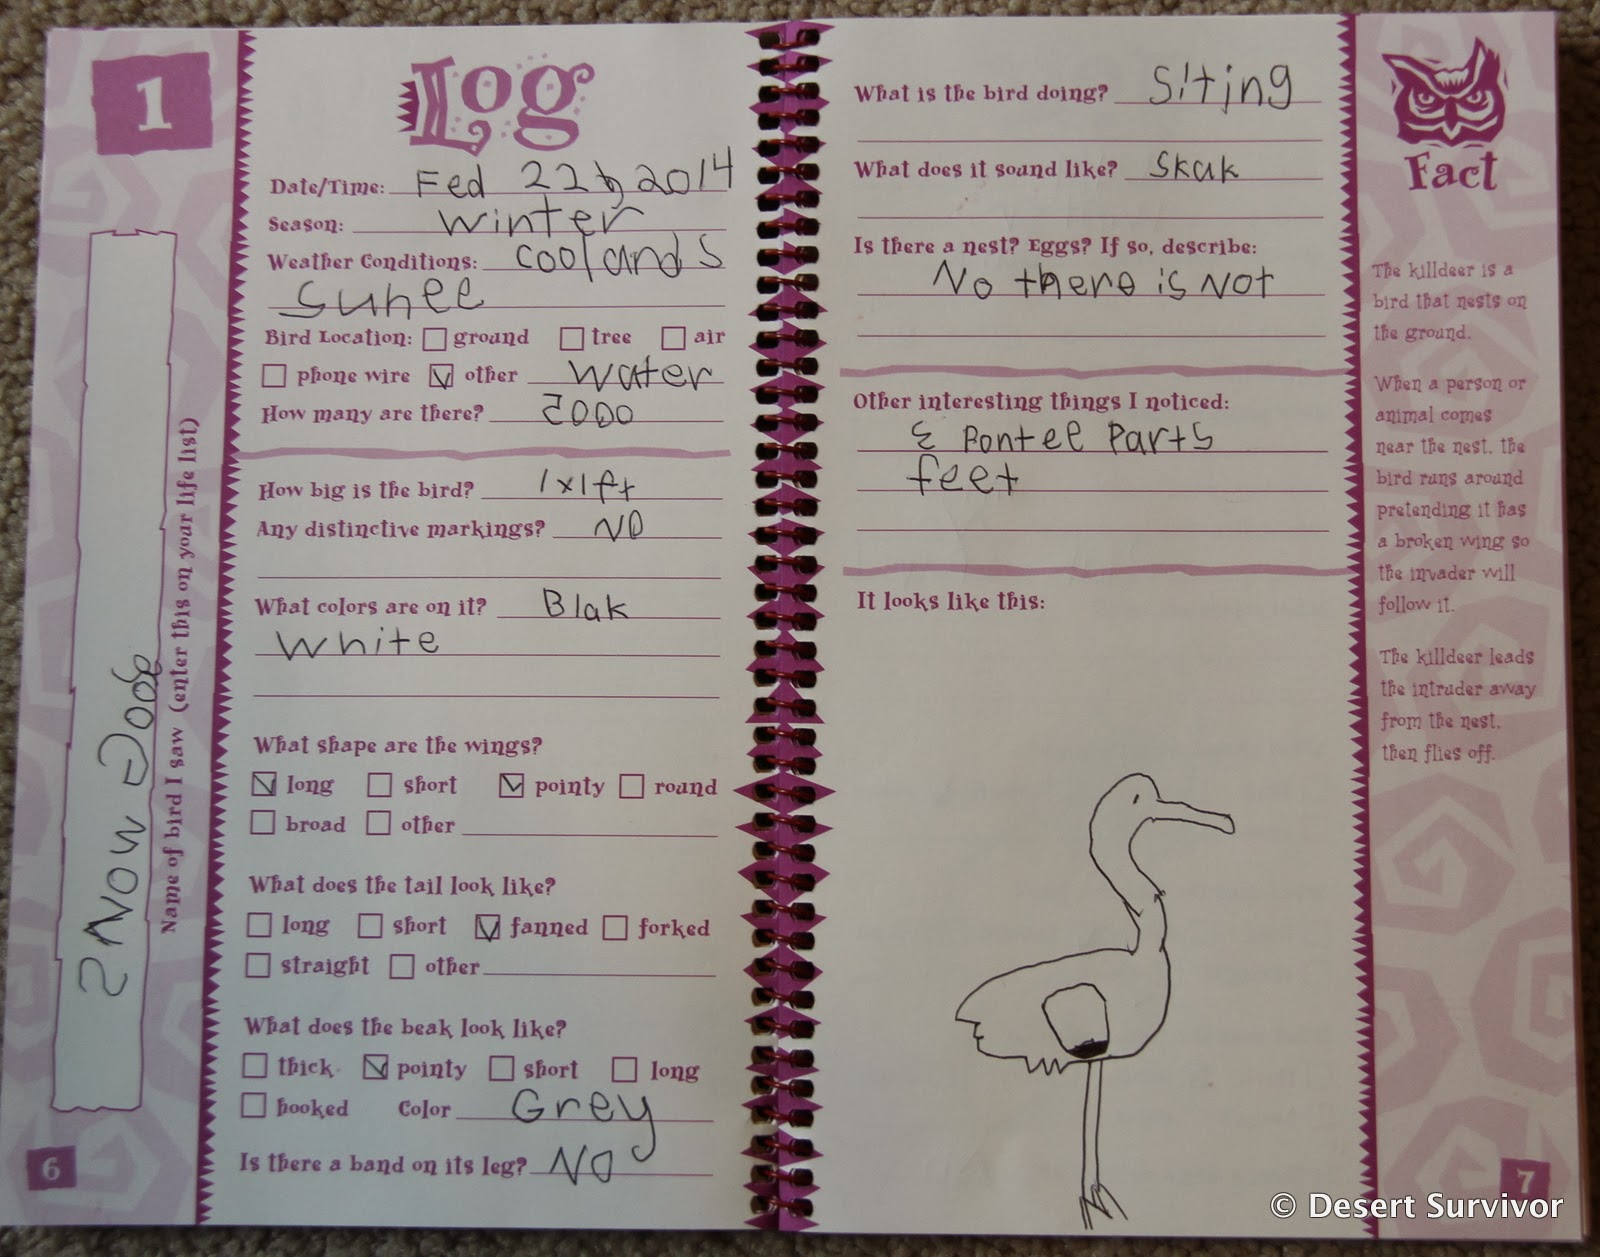 1
Log
Date/Time: Fed 22th 2014
Season: winter
Weather Conditions: cool and s
sunee
Bird Location: ground tree air
phone wire other water
How many are there? 2000
How big is the bird? 1x1ft
Any distinctive markings? NO
What colors are on it? Blak
white
What shape are the wings?
long short pointy round
broad other
What does the tail look like?
long short fanned forked
straight other
What does the beak look like?
thick pointy short long
hooked Color Grey
Is there a band on its leg? NO
Name of bird I saw (enter this on your life list)
SNow Goos
6
What is the bird doing? siting
What does it sound like? skuk
Is there a nest? Eggs? If so, describe:
No there is not
Other interesting things I noticed:
Pontee Parts
feet
It looks like this:
Fact
The killdeer is a
bird that nests on
the ground.
When a person or
animal comes
near the nest, the
bird runs around
pretending it has
a broken wing so
the invader will
follow it.
The killdeer leads
the intruder away
from the nest,
then flies off.
7
© Desert Survivor